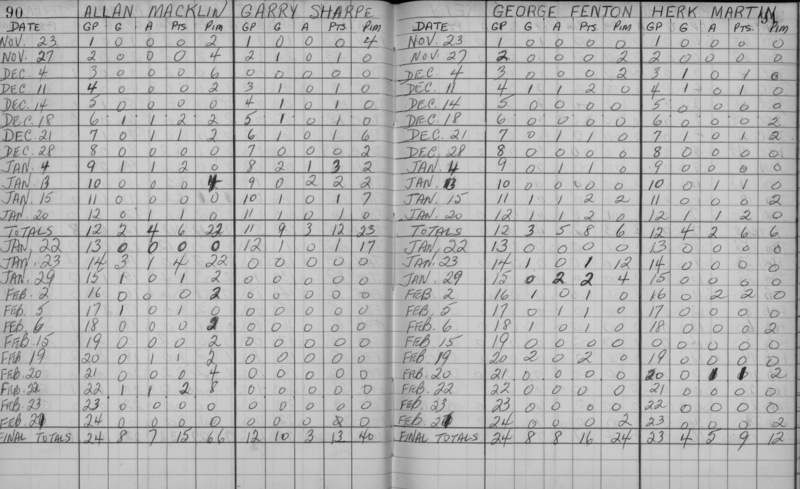 90 ALLAN MACKLIN GARRY SHARPE
DATE GP G A Pts Pim GP G A Pts. Pim
NOV. 23 1 0 0 0 2 1 0 0 0 4
NOV 27 2 0 0 0 4 2 1 0 1 0
DEC. 4 3 0 0 0 6 0 0 0 0 0
DEC. 11 4 0 0 0 2 3 1 0 1 0
DEC. 14 5 0 0 0 0 4 1 0 1 0
DEC. 18 6 1 1 2 2 5 1 0 1 0
DEC. 21 7 0 1 1 2 6 1 0 1 6
DEC. 28 8 0 0 0 0 7 0 0 0 2
JAN. 4 9 1 1 2 0 8 2 1 3 2
JAN 13 10 0 0 0 4 9 0 2 2 2
JAN. 15 11 0 0 0 0 10 1 0 1 7
JAN. 20 12 0 1 1 0 11 1 0 1 0
TOTALS 12 2 4 6 22 11 9 3 12 23
JAN, 22 13 0 0 0 0 12 1 0 1 17
JAN. 23 14 3 1 4 22 0 0 0 0 0
JAN. 29 15 1 0 1 2 0 0 0 0 0
FEB. 2 16 0 0 0 2 0 0 0 0 0
FEB. 5 17 1 0 1 0 0 0 0 0 0
FEB. 6 18 0 0 0 2 0 0 0 0 0
FEB. 15 19 0 0 0 2 0 0 0 0 0
FEB 19 20 0 1 1 2 0 0 0 0 0
FEB. 20 21 0 0 0 4 0 0 0 0 0
FEB. 22 22 1 1 2 8 0 0 0 0 0
FEB. 23 23 0 0 0 0 0 0 0 0 0
FEB. 24 0 0 0 0 0 0 0 0
FINAL TOTALS 24 8 7 15 66 12 10 3 13 40
GEORGE FENTON HERK MARTIN 91
DATE GP G A Pts. Pim GP G A Pts. Pim
NOV. 23 1 0 0 0 0 1 0 0 0 0
NOV. 27 2 0 0 0 2 2 0 0 0 0
DEC. 4 3 0 0 0 2 3 1 0 1 0
DEC. 11 4 1 1 2 0 4 1 0 1 0
DEC. 14 5 0 0 0 0 5 0 0 0 0
DEC. 18 6 0 0 0 0 6 0 0 0 2
DEC. 21 7 0 1 1 0 7 1 0 1 2
DEC. 28 8 0 0 0 0 8 0 0 0 0
JAN. 4 9 0 1 1 0 9 0 0 0 0
JAN. 13 10 0 0 0 0 10 0 1 1 0
JAN. 15 11 1 1 2 2 11 0 0 0 2
JAN. 20 12 1 1 2 0 12 1 1 2 0
TOTALS 12 3 5 8 6 12 4 2 6 6
JAN, 22 13 0 0 0 0 13 0 0 0 0
JAN. 23 14 1 0 1 12 14 0 0 0 0
JAN. 29 15 0 2 2 4 15 0 0 0 0
FEB 2 16 1 0 1 0 16 0 2 2 0
FEB. 5 17 0 1 1 0 17 0 0 0 0
FEB. 6 18 1 0 1 0 18 0 0 0 2
FEB. 15 19 0 0 0 0
FEB 19 20 2 0 2 0 19 0 0 0 0
FEB. 20 21 0 0 0 0 20 0 1 1 2
FEB. 22 22 0 0 0 0 21 0 0 0 0
FEB. 23 23 0 0 0 0 22 0 0 0 0
FEB. 24 0 0 0 2 23 0 0 0 2
FINAL TOTALS 24 8 8 16 24 23 4 5 9 12